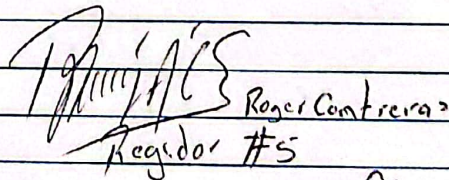 Roger Contreras
Regidor #5